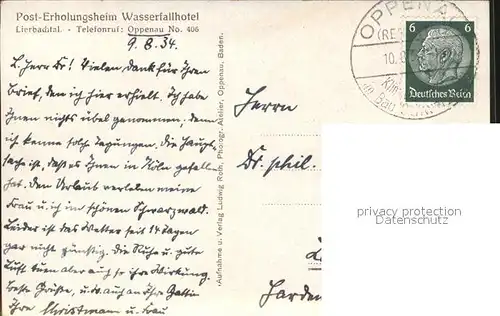 Post-Erholungsheim Wasserfallhotel
Lierbachtal. - Telefonruf: Oppenau No. 406
9.8.34.
L. Herr Dr! Vielen Dank für Ihren
Brief, den ich hier erhielt. Ich habe
Ihnen nichts übel genommen, denn
ich kenne solche Tagungen. Die Haupt-
sache ist, daß es Ihnen in Köln gefallen
hat. Den Urlaub verleben meine
Frau u. ich im schönen Schwarzwald.
Leider ist das Wetter seit 14 Tagen
gar nicht günstig. Die Ruhe u. gute
Luft tuen aber auch so ihre Wirkung.
Beste Grüße, u. auch an Ihre Gattin
Ihre Christmann u. Frau
Aufnahme u. Verlag Ludwig Roth, Photogr.-Atelier, Oppenau, Baden.
OPPENAU
10.
6 6
Deutsches Reich
Herrn
Dr. phil.
privacy protection
Datenschutz